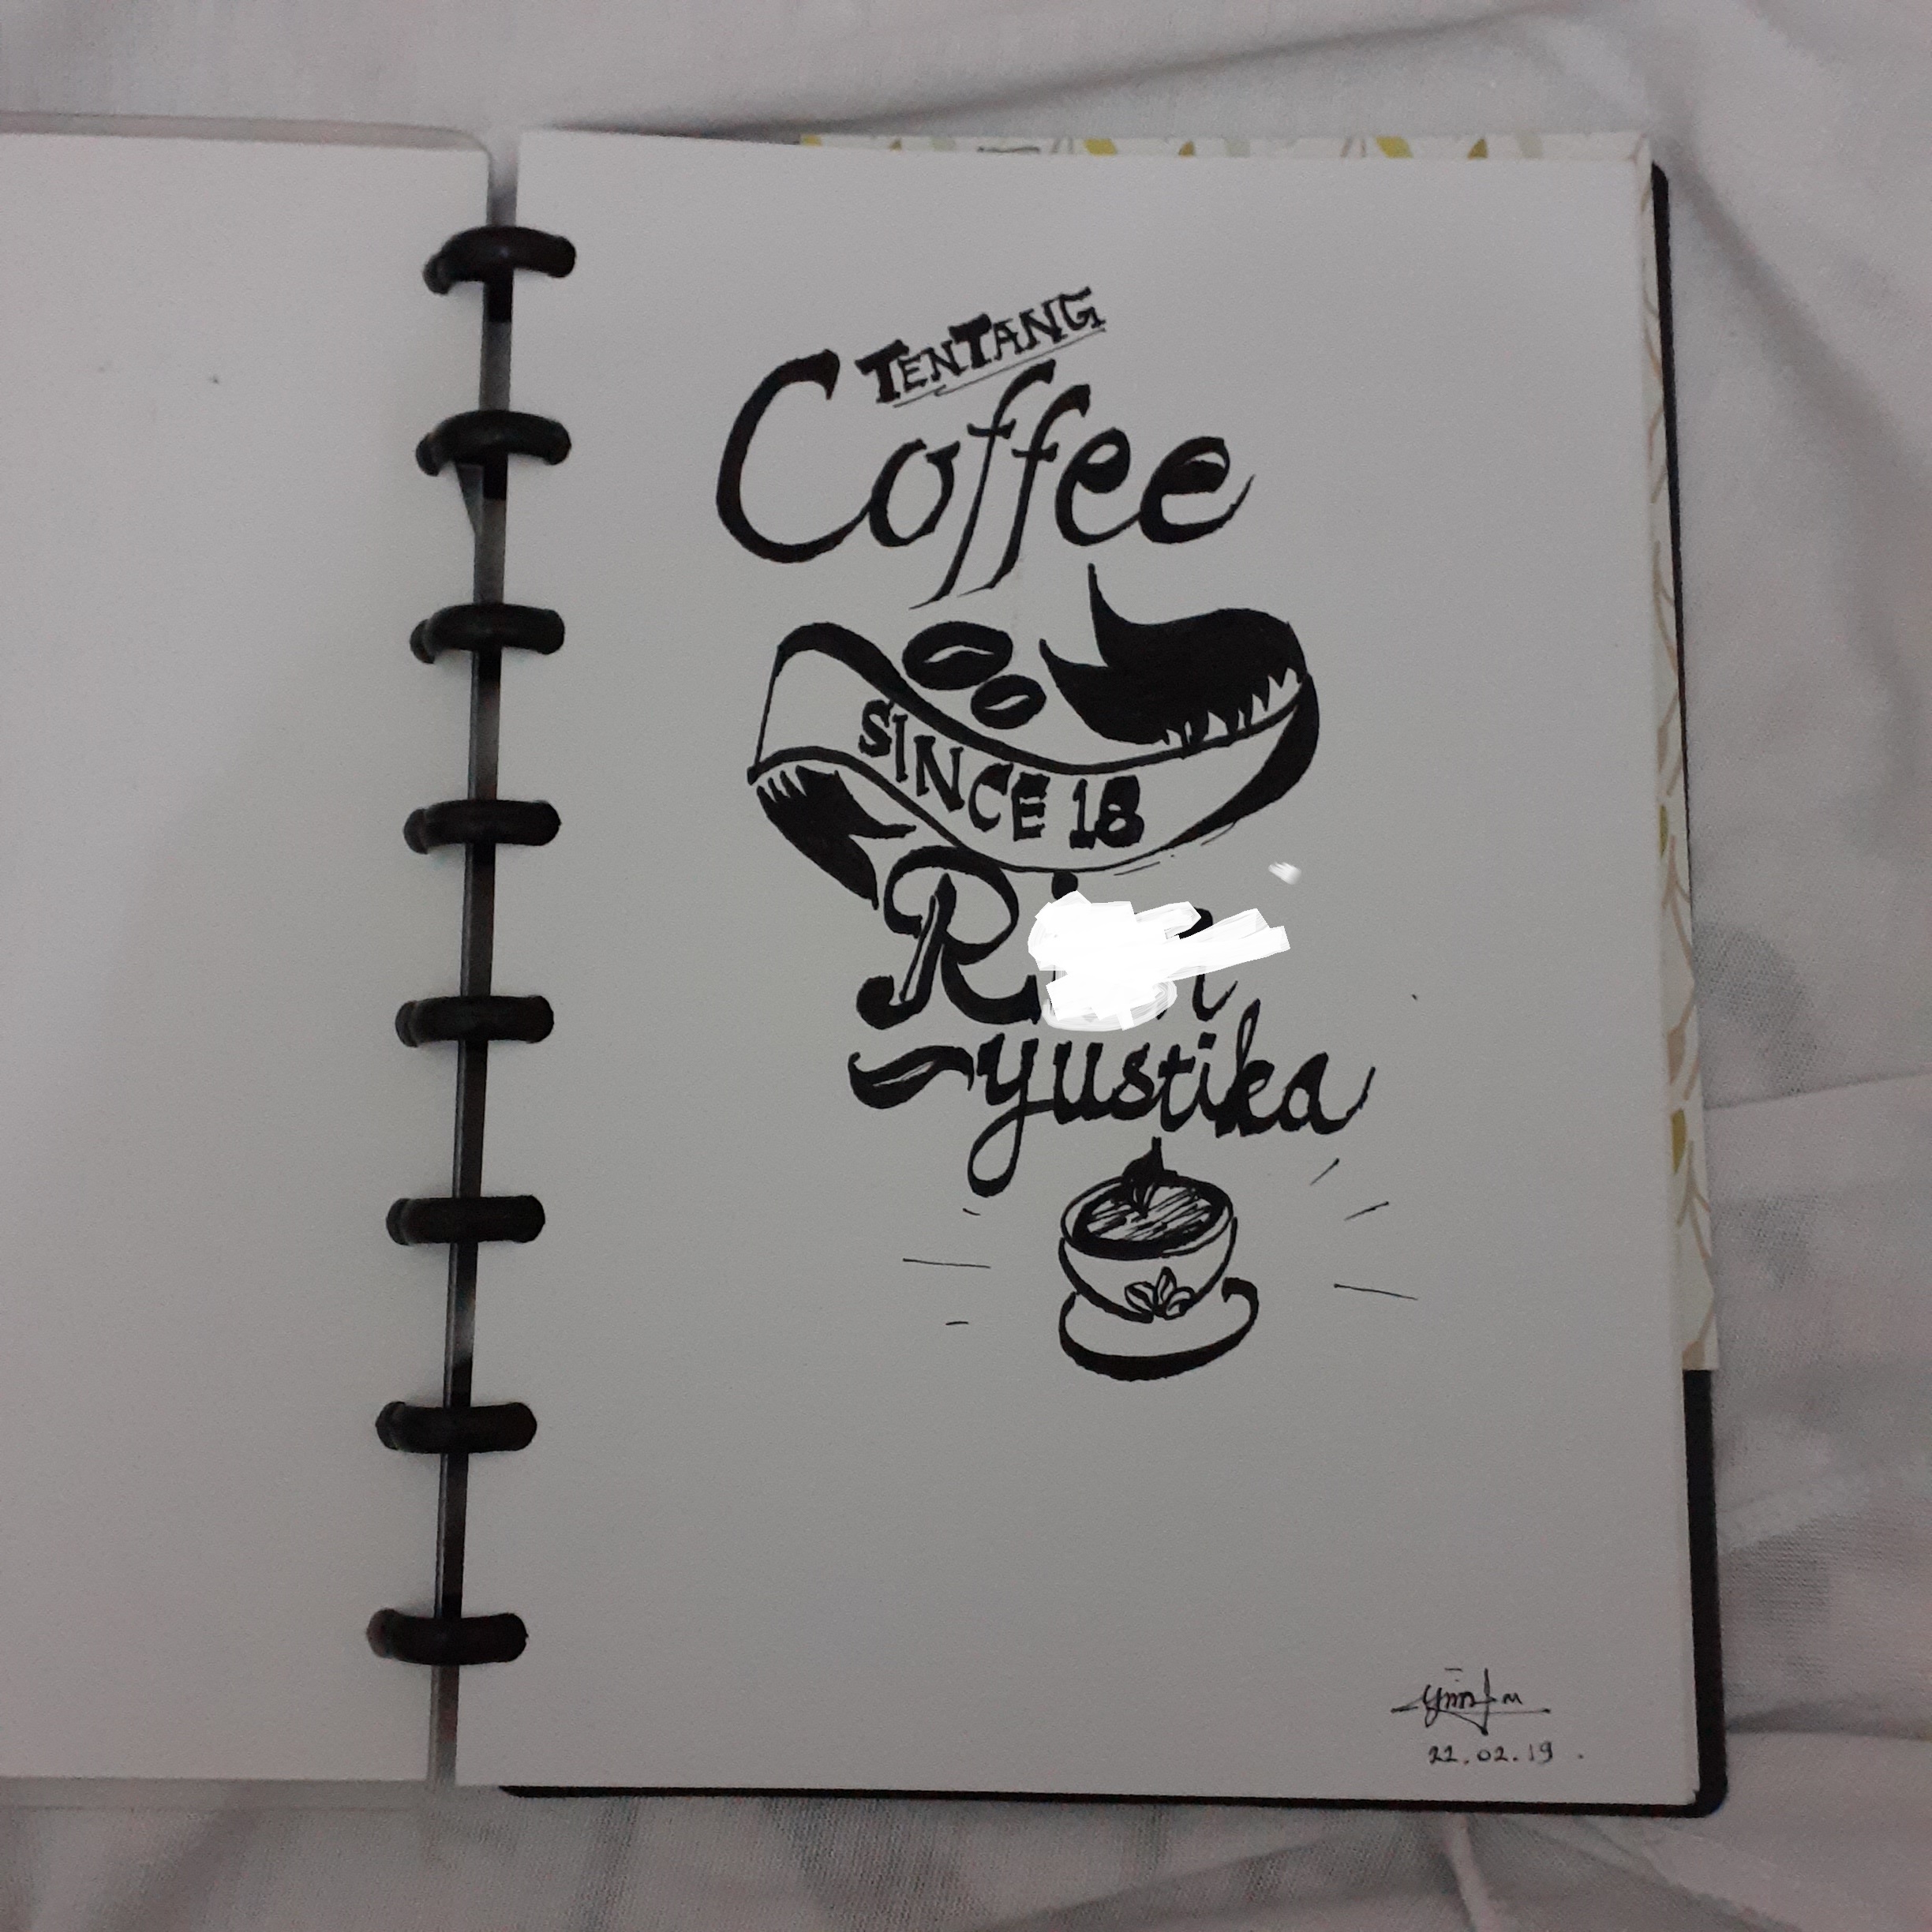 TENTANG
Coffee
SINCE 18
yustika
22.02.19